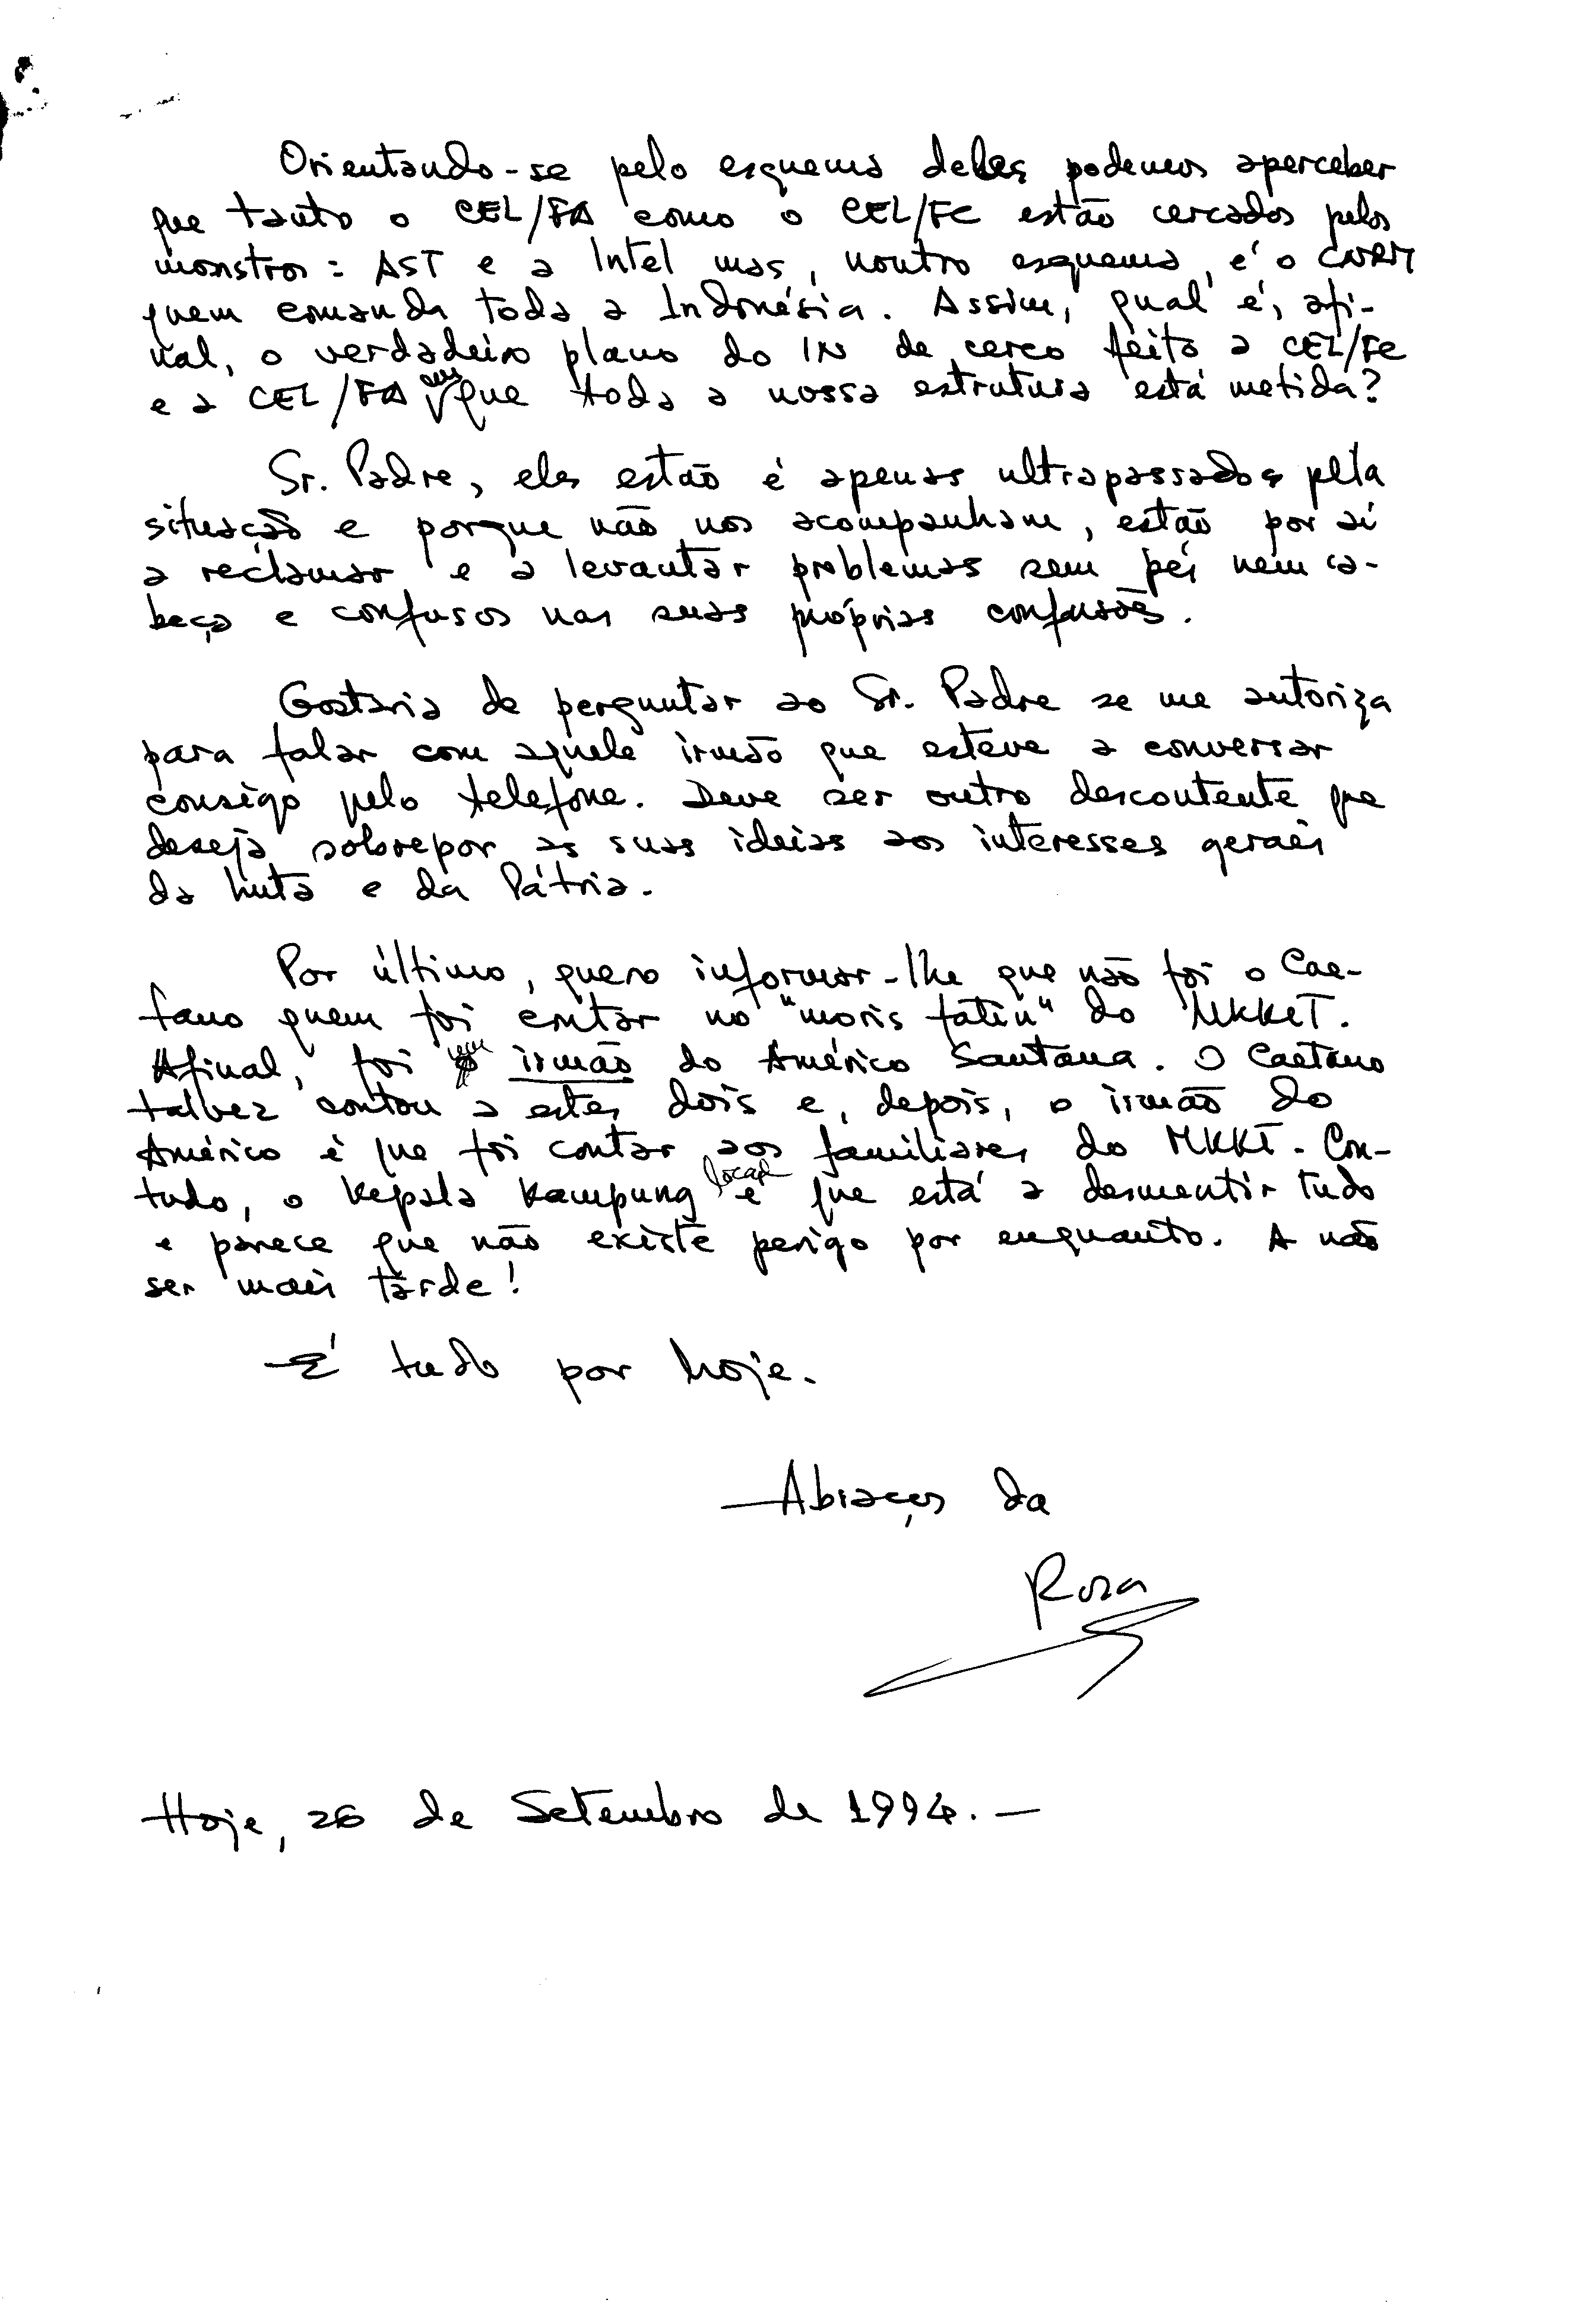 Orientando-se pelo esquema deles podemos aperceber
que tanto o CEL/FA como o CEL/FC estão cercados pelos
monstros: AST e a Intel mas, noutro esquema, é o CNRM
quem comanda toda a Indonésia. Assim, qual é, afi-
nal, o verdadeiro plano do IN de cerco feito a CEL/FC
e a CEL/FA em que toda a nossa estrutura está metida?
Sr. Padre, eles estão é apenas ultrapassados pela
situação e porque não nos acompanham, estão por aí
a reclamar e a levantar problemas sem pés nem ca-
beça e confusos nas suas próprias confusões.
Gostaria de perguntar ao Sr. Padre se me autoriza
para falar com aquele irmão que esteve a conversar
consigo pelo telefone. Deve ser outro descontente que
deseja sobrepor as suas ideias aos interesses gerais
da Luta e da Pátria.
Por último, quero informar-lhe que não foi o Cae-
tano quem foi contar no "moris fatin" do MKKT.
Afinal, foi um irmão do Américo Santana. O Caetano
talvez contou a estes dois e, depois, o irmão do
Américo é que foi contar aos familiares do MKKT. Con-
tudo, o Kepala Kampung local é que está a desmentir tudo
e parece que não existe perigo por enquanto. A não
ser mais tarde!
É tudo por hoje.
Abraços da
Rosa
Hoje, 26 de Setembro de 1994.-